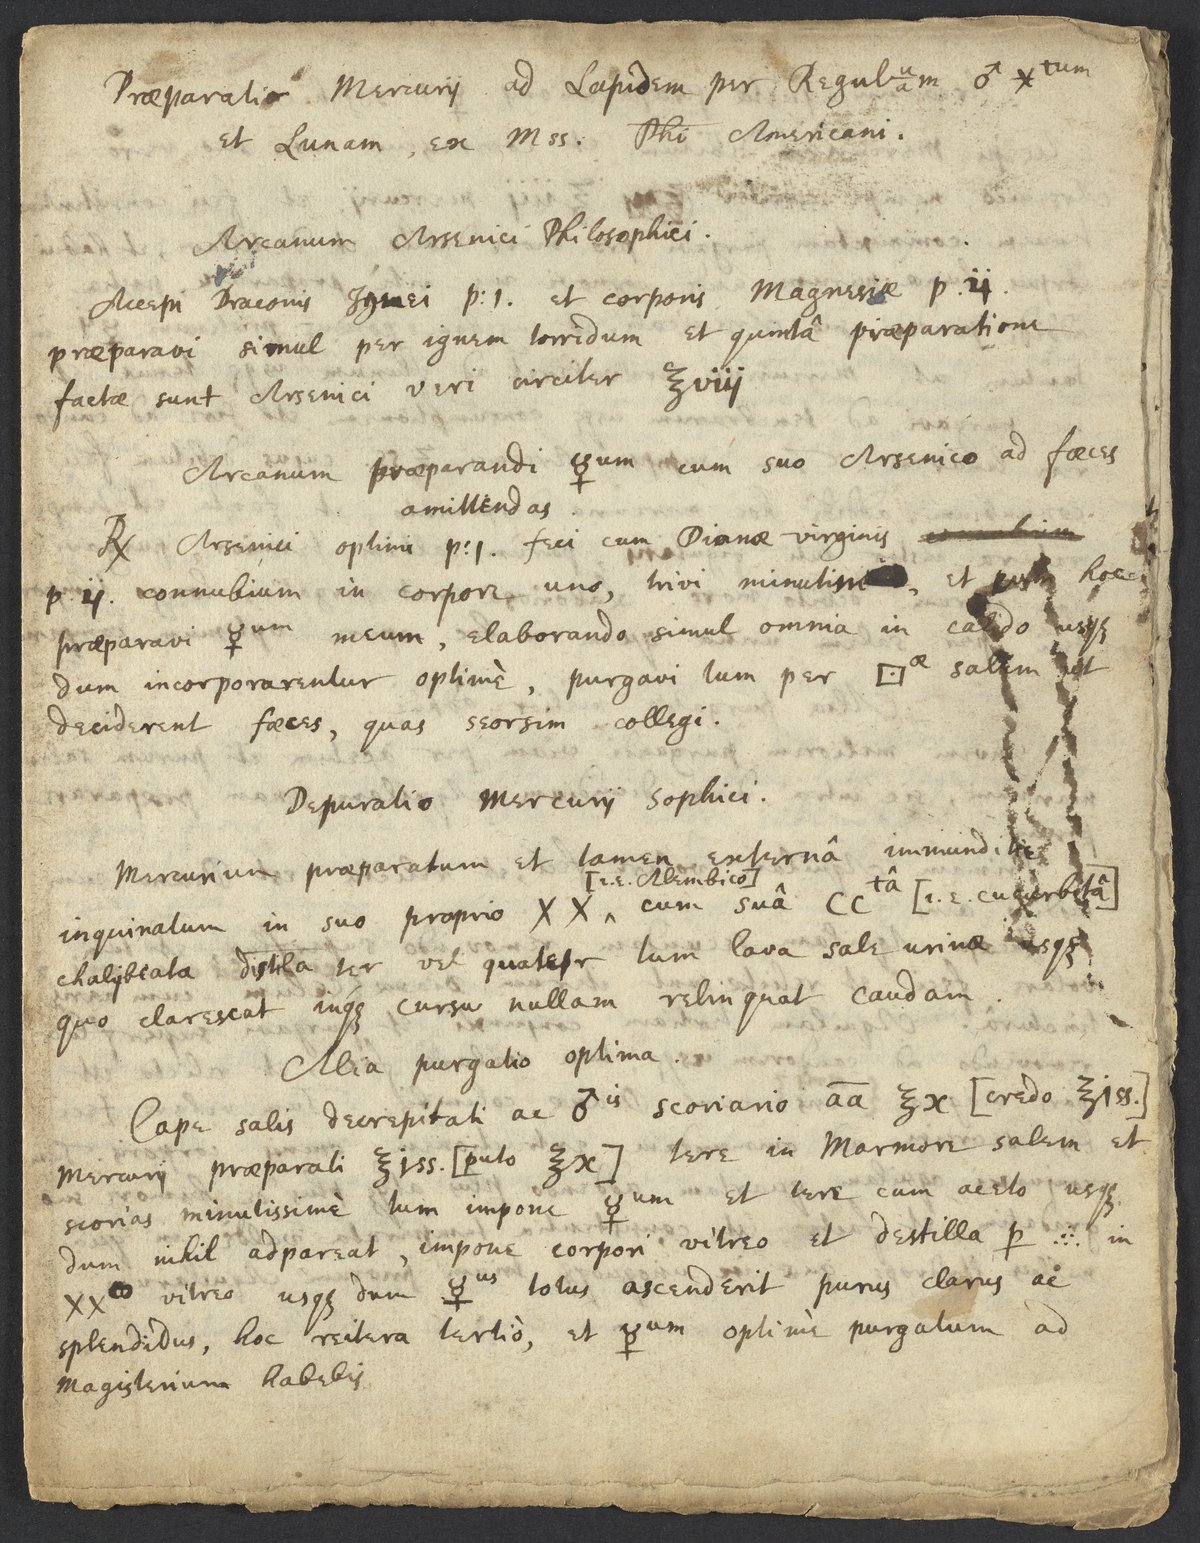 Præparatio Mercurij ad Lapidem per Regulum ♂ ☓tum
et Lunam, ex Mss. Phi Americani.
Arcanum Arsenici Philosophici.
Accepi Draconis Ignei p:1. et corporis Magnesiæ p.ij.
præparavi simul per ignem torridum et quintâ præparatione
factæ sunt Arsenici veri circiter ℥viij
Arcanum præparandi ☿um cum suo Arsenico ad fæces
amittendas.
℞ Arsenici optimi p:1. feci cum Dianæ virginis
p.ij. connubium in corpore uno, trivi minutim, et post hoc
præparavi ☿um meum, elaborando simul omnia in calido usqꝫ
dum incorporarentur optimè, purgavi tum per ⊡æ salem ut
deciderent fæces, quas seorsim collegi.
Depuratio Mercurij Sophici.
Mercurium præparatum et tamen externâ immunditie
[i.e. Alembico]
inquinatum in suo proprio XX‸ cum suâ CCtâ [i.e. cucurbitâ]
chalybeata distilla ter vel quater tum lava sale urinæ usqꝫ
quo clarescat inqꝫ cursu nullam relinquat caudam.
Alia purgatio optima.
Cape salis decrepitati ac ♂is scoriario āā ℥x [credo ℥jss.]
Mercurij præparati ℥jss. [puto ℥x] tere in Marmore salem et
scorias minutissimè tum impone ☿um et tere cum aceto usqꝫ
dum nihil adpareat, impone corpori vitreo et destilla p ∴ in
XXco vitreo usqꝫ dum ☿us totus ascenderit purus clarus ac
splendidus, hoc reitera tertiò, et ☿um optimè purgatum ad
Magisterium habebis